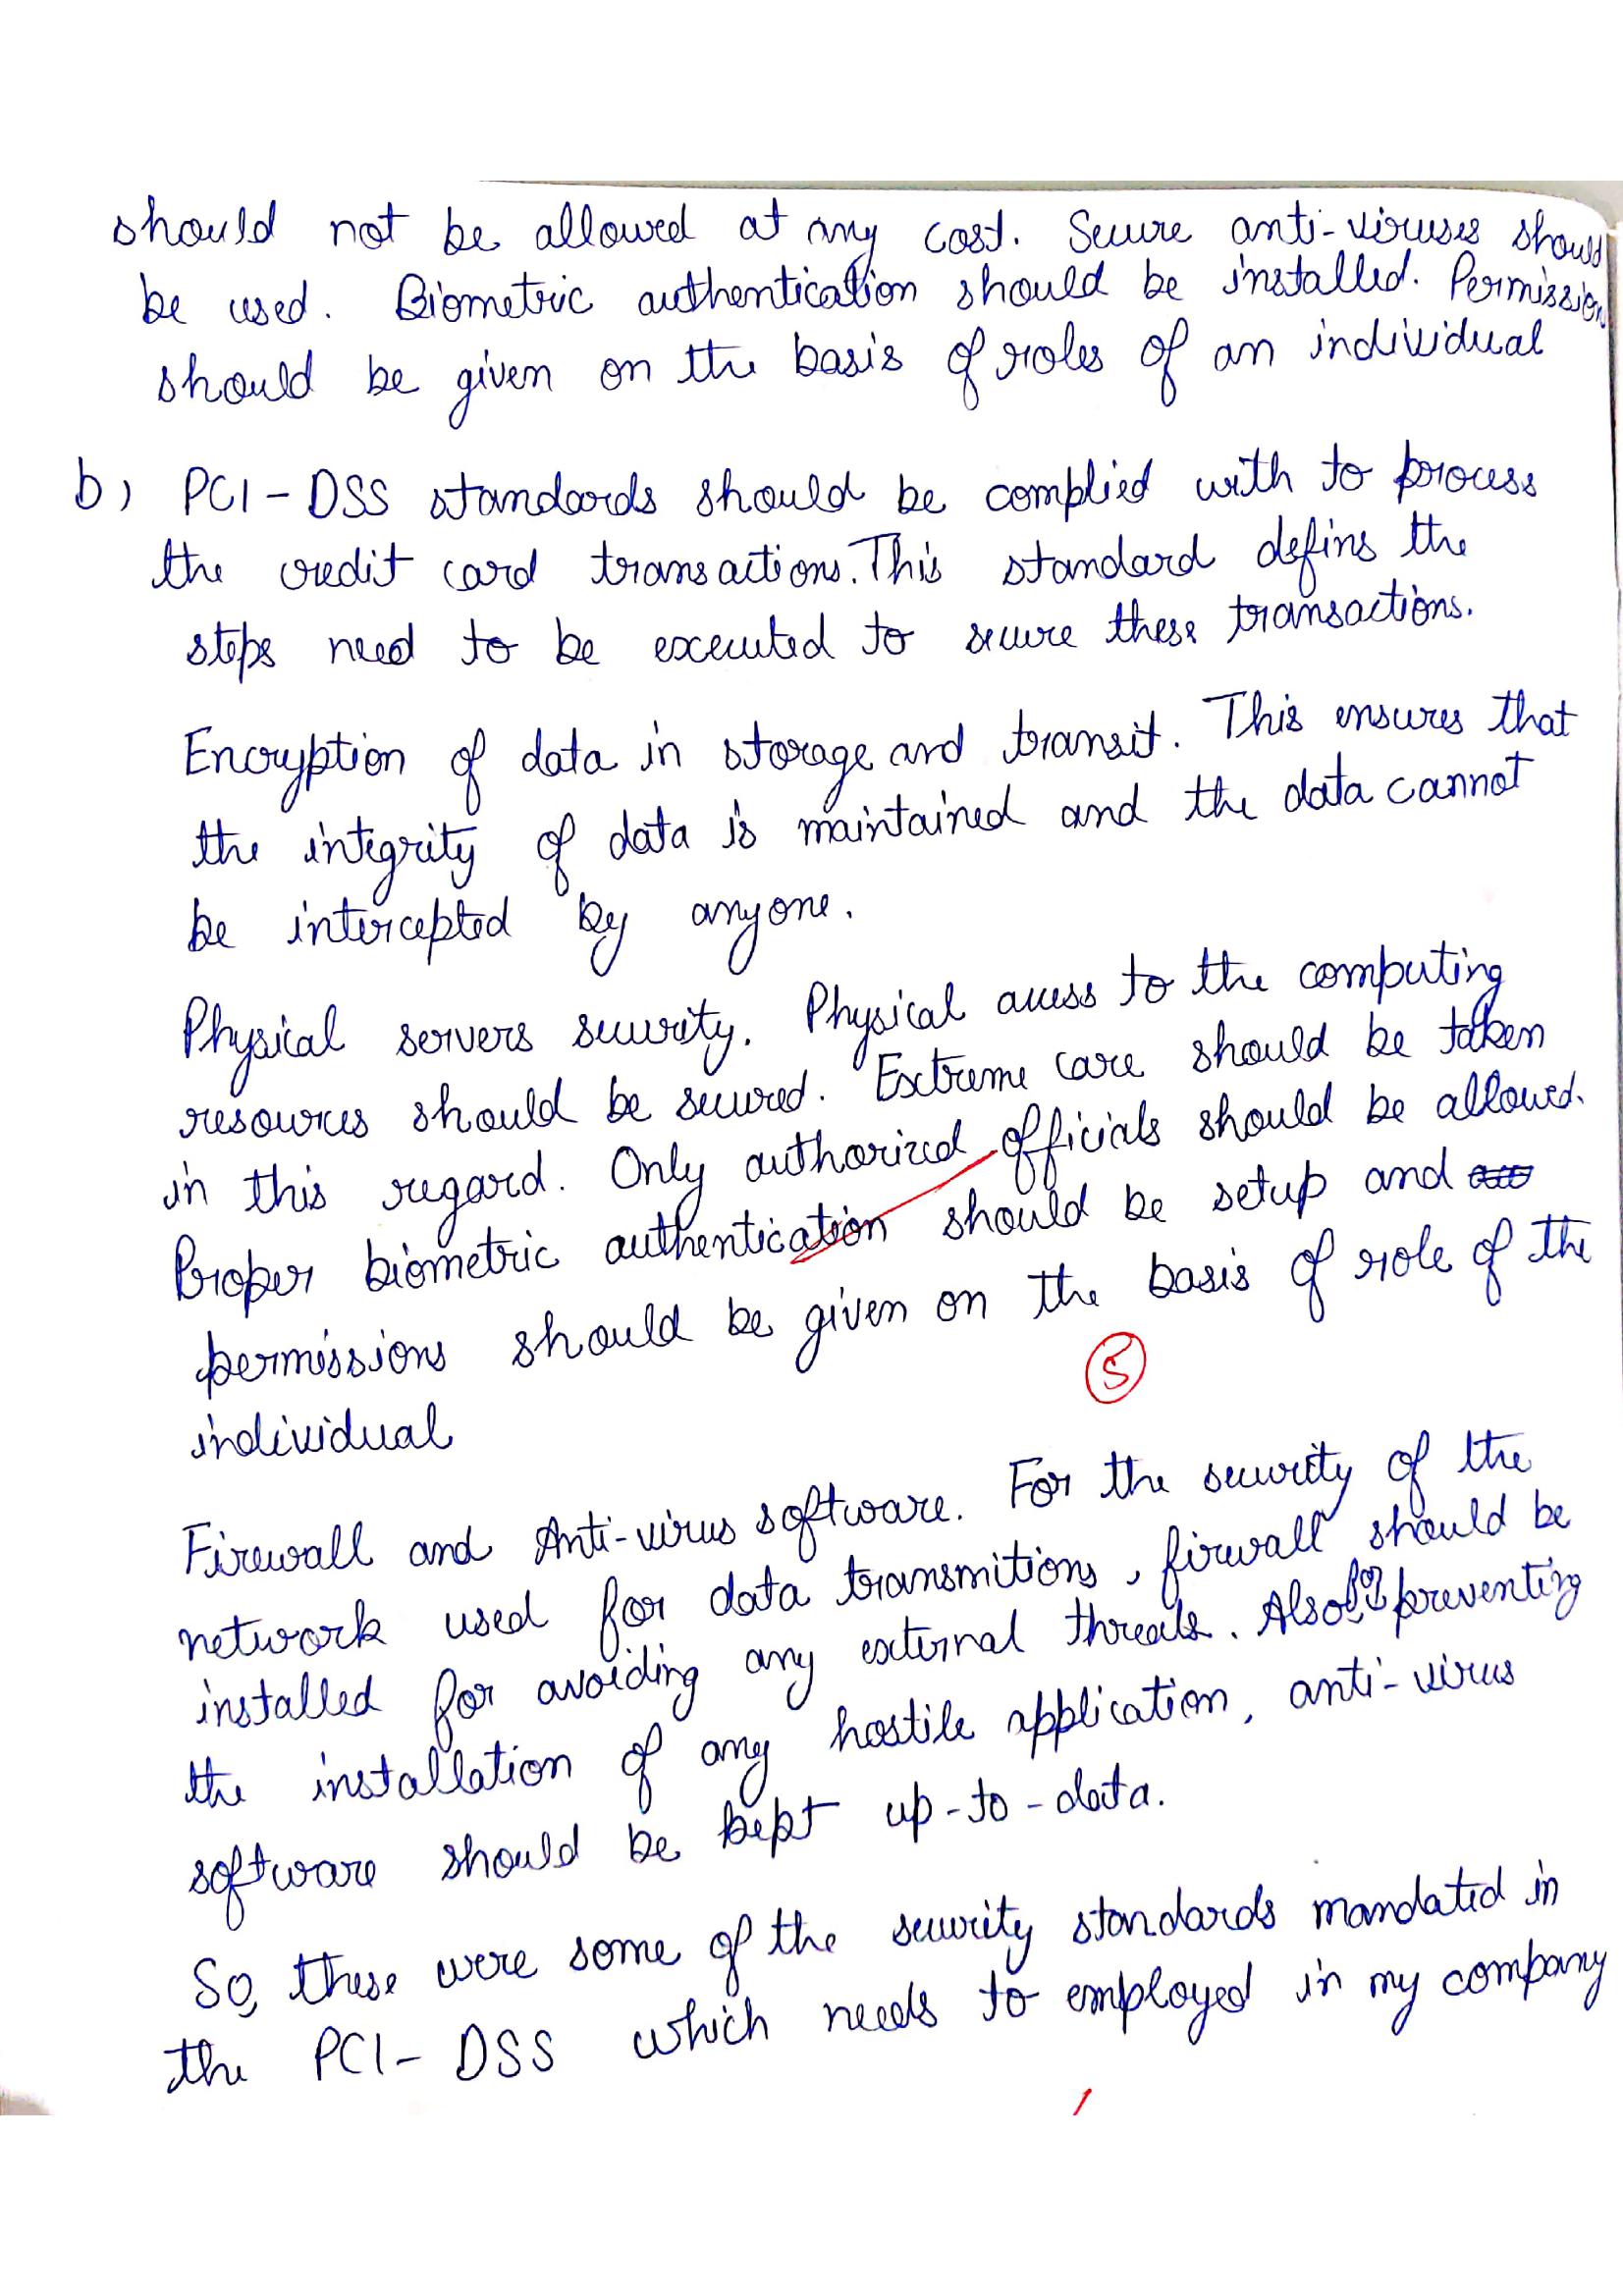 should not be allowed at any cost. Secure anti-viruses should
be used. Biometric authentication should be installed. Permission
should be given on the basis of roles of an individual
b) PCI-DSS standards should be complied with to process
the credit card transactions. This standard defins the
steps need to be executed to secure these transactions.
Encryption of data in storage and transit. This ensures that
the integrity of data is maintained and the data cannot
be intercepted by anyone.
Physical servers security. Physical access to the computing
resources should be secured. Extreme care should be taken
in this regard. Only authorized officials should be allowed.
Proper biometric authentication should be setup and
permissions should be given on the basis of role of the
5
individual
Firewall and Anti-virus software. For the security of the
network used for data transmitions, firewall should be
installed for avoiding any external threats. Also for preventing
the installation of any hostile application, anti-virus
software should be kept up-to-data.
So, these were some of the security standards mandated in
the PCI-DSS which needs to employed in my company